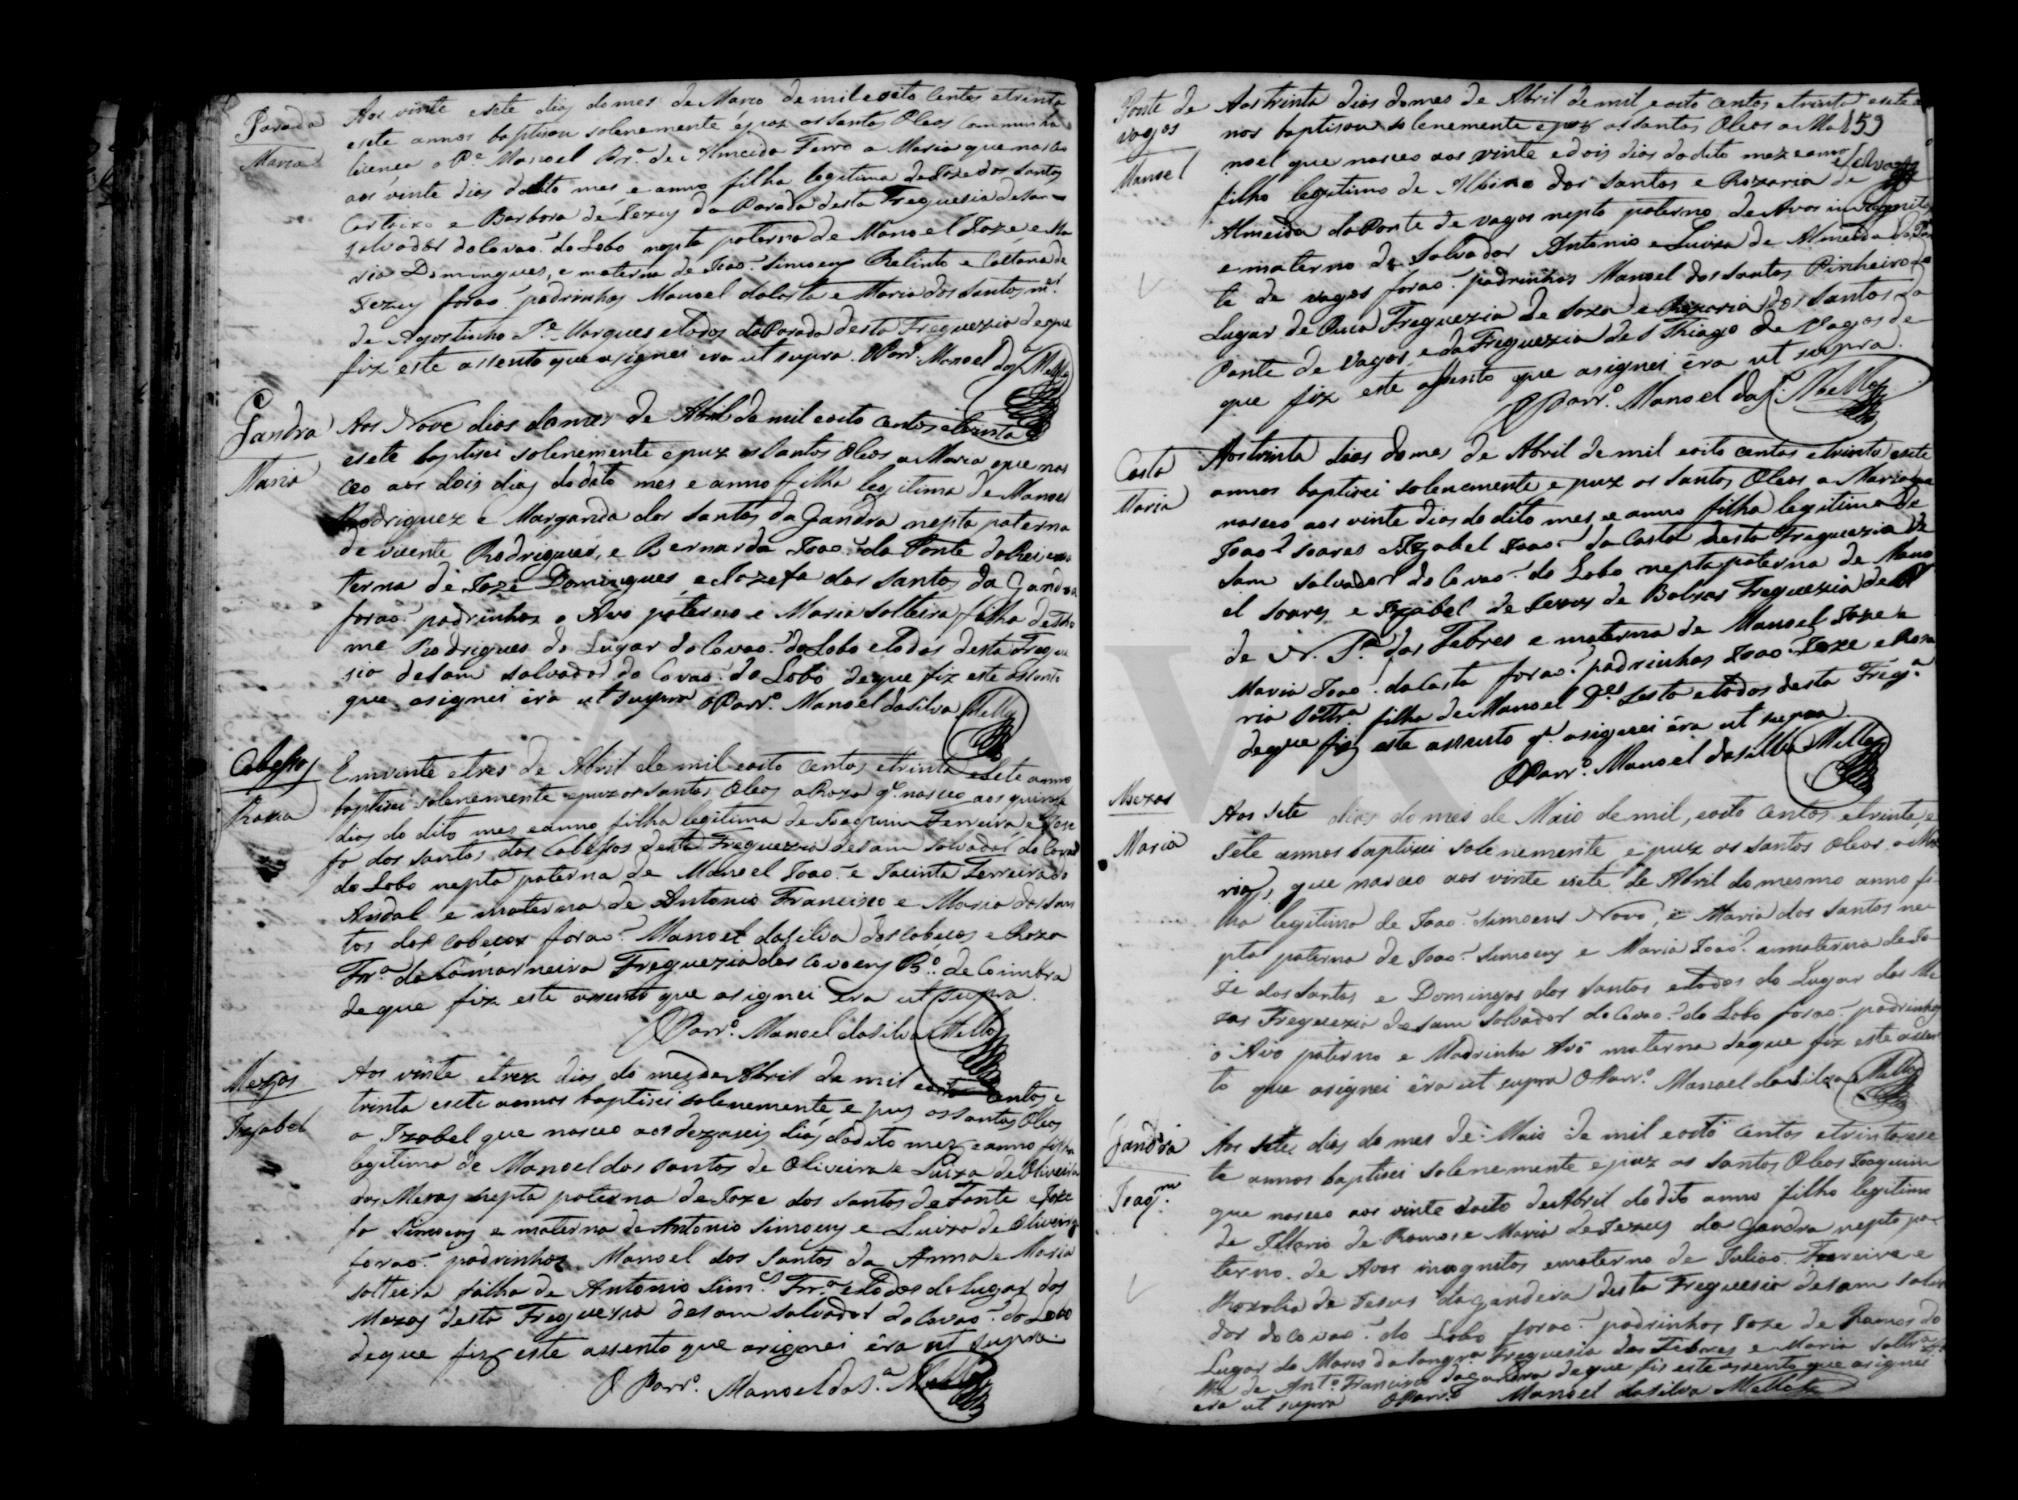 Parada
Maria
Aos vinte esete dias do mes de Marco de mil eoito Centos etrinta
esete annos baptisou solenemente epoz os santos Oleos Com minha
licença o Pe. Manoel de Almeida Ferro a Maria que nasceo
aos vinte dias do dito mes e anno filha legitima de Joze dos santos
e Barbora de Jezus da Parada desta Freguesia de san
salvador do Covao do Lobo nepta paterna de Manoel Joze e Ma
ria Domingues, e materna de Joao Simoens Relinto e Caetana de
Jezus forao padrinhos Manoel da Costa e Maria dos santos
de Agostinho Marques etodos da Parada desta Freguezia deque
fiz este assento que asignei era ut supra. O Parro. Manoel da Sa. Mello
Gandra
Maria
Aos Nove dias do mes de Abril de mil eoito Centos etrinta
esete baptisei solenemente epuz os santos Oleos a Maria que nas
ceo aos dois dias do dito mes e anno filha legitima de Manoel
Rodriguez e Margarida dos santos da Gandra nepta paterna
de vicente Rodrigues, e Bernarda Joao da Fonte
terna de Joze Domingues e Jozefa dos santos da Gandra
forao padrinhos o Avo paterno e Maria solteira filha de
me Rodrigues do Lugar do Covao do Lobo etodos desta Fregue
sia de sam salvador do Covao do Lobo deque fiz este assento
que asignei era ut supra O Parro. Manoel da silva Mello
Cabessos
Roza
Em vinte etres de Abril de mil eoito Centos etrinta esete annos
baptisei solenemente epuz os santos Oleos a Roza q. nasceo aos quinze
dias do dito mes eanno filha legitima de Joaquim Ferreira, e Joze
fa dos santos dos Cabessos desta Freguezia de sam salvador do Covao
do Lobo nepta paterna de Manoel Joao e Jacinta Ferreira do
Andal e materna de Antonio Francisco e Maria dos san
tos dos cabecos forao Manoel da silva dos cabecos e Roza
Fra. da Camarneira Freguezia dos Covoens Bo. de Coimbra
deque fiz este assento que asignei era ut supra.
O Parro. Manoel da silva Mello
Mezas
Izabel
Aos vinte etrez dias do mez de Abril de mil eoito Centos e
trinta esete annos baptisei solenemente, e puz os santos Oleos
a Izabel que nasceo aos dezaseis dias do dito mez e anno filha
legitima de Manoel dos santos de Oliveira e Luiza de Oliveira
das Mezas nepta paterna de Joze dos santos da Fonte e Joze
fa Simoens e materna de Antonio Simoens e Luiza de Oliveira
forao padrinhos Manoel dos santos da Anna e Maria
solteira filha de Antonio Sim.es Fra. etodos do Lugar das
Mezas desta Freguezia de sam salvador do Covao do Lobo
deque fiz este assento que asignei era ut supra
O Parro. Manoel da Sa. Mello
Ponte de
vagos
Manoel
Aos trinta dias do mes de Abril de mil eoito Centos etrinta esete
nos baptisou solenemente epuz os santos Oleos a Ma
159
noel que nasceo aos vinte edois dias do dito mez eanno
filho legitimo de Albino dos santos e Rozaria de
Almeida da Ponte de vagos nepto paterno de Avos incognitos
e materno de Salvador Antonio e Luiza de Almeida da Pon
te de vagos forao padrinhos Manoel dos santos Pinheiro do
Lugar de Freguezia de Soza e Rozaria dos santos da
Ponte de Vagos, e da Freguezia de S Thiago de Vagos de
que fiz este assento que asignei era ut supra.
O Parro. Manoel da Sa. Mello
Costa
Maria
Aos trinta dias do mes de Abril de mil eoito centos etrinta esete
annos baptisei solenemente e puz os santos Oleos a Maria que
nasceo aos vinte dias do dito mes, e anno filha legitima de
Joao soares e Izabel Joao da Costa desta Freguezia de
sam salvador do Covao do Lobo nepta paterna de Mano
el soares e Izabel de Jezus de Balsas Freguezia de
de N. Sa. das Febres e materna de Manoel Joze e
Maria Joao da Costa forao padrinhos Joao Joze e Roza
ria soltra. filha de Manoel Des. Costa etodos desta Frega.
deque fiz este assento q. asignei era ut supra
O Parro. Manoel da silva Mello
Mezas
Maria
Aos sete dias do mes de Maio de mil, eoito centos etrinta, e
sete annos baptisei solenemente, epuz os santos Oleos a Ma
ria, que nasceo aos vinte esete de Abril do mesmo anno fi
lha legitima de Joao simoens Novo, e Maria dos santos ne
pta paterna de Joao simoens e Maria Joao ematerna de Jo
ze dos santos e Domingas dos santos etodos do Lugar das Me
zas Freguezia de sam Salvador do Covao do Lobo forao padrinhos
o Avo paterno e Madrinha Avo materna deque fiz este assen
to que asignei era ut supra O Parro. Manoel da silva Mello
Gandra
Joaqm.
Aos sete dias do mes de Maio de mil eoito centos etrinta ese
te annos baptisei solenemente epuz os santos Oleos Joaquim
que nasceo aos vinte eoito de Abril do dito anno filho legitimo
de Illario de Ramos e Maria de Jezus da Gandra nepto pa
terno de Avos incognitos ematerno de Juliao Ferreira e
Rozalia de Jesus da gandera desta Freguesia de sam salva
dor do Covao do Lobo forao padrinhos Joze de Ramos do
Lugar do Marco da Freguesia das Febres e Maria soltra. fi
lha de Anto. Francisco da gandera deque fis este assento que asignei
era ut supra O Parro. Manoel da silva Mello